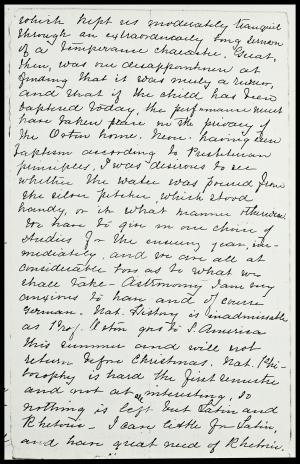 which kept us moderately tranquil
through an extraordinarily long sermon
of a temperance character. Great,
then, was our disappointment at
finding that it was merely a rumor,
and that if the child has been
baptized today, the performance must
have taken place in the privacy of
the Orton home. Never having seen
baptism according to Presbyterian
principles, I was desirous to see
whether the water was poured from
the silver pitcher which stood
handy, or in what manner otherwise.
We have to give in our choice of
studies for the ensuing year, im-
mediately, and we are all at
considerable loss as to what we
shall take - Astronomy I am very
anxious to have and of course
German. Nat. History is inadmissable
as Prof. Orton goes to S. America
this summer and will not
return before Christmas. Nat. Phi-
losophy is hard the first semester
and not at all interesting, so
nothing is left but Latin and
Rhetoric - I can settle for Latin,
and have great need of Rhetoric.